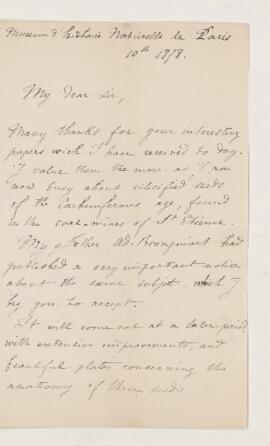 Museum d'histoire Naturelle de Paris
10th 1878.
My dear Sir,
Many thanks for your interesting
papers wich I have received to day.
I value them the more as I am
now busy about silicified seeds
of the Carboniferous age, found
in the coal-mines of St Etienne.
My father Ad. Brongniart had
published a very important notice
about the same subject, which I
beg you to accept.
It will come out at a later period,
with extensive improvements, and
beautiful plates concerning the
anatomy of these seeds.